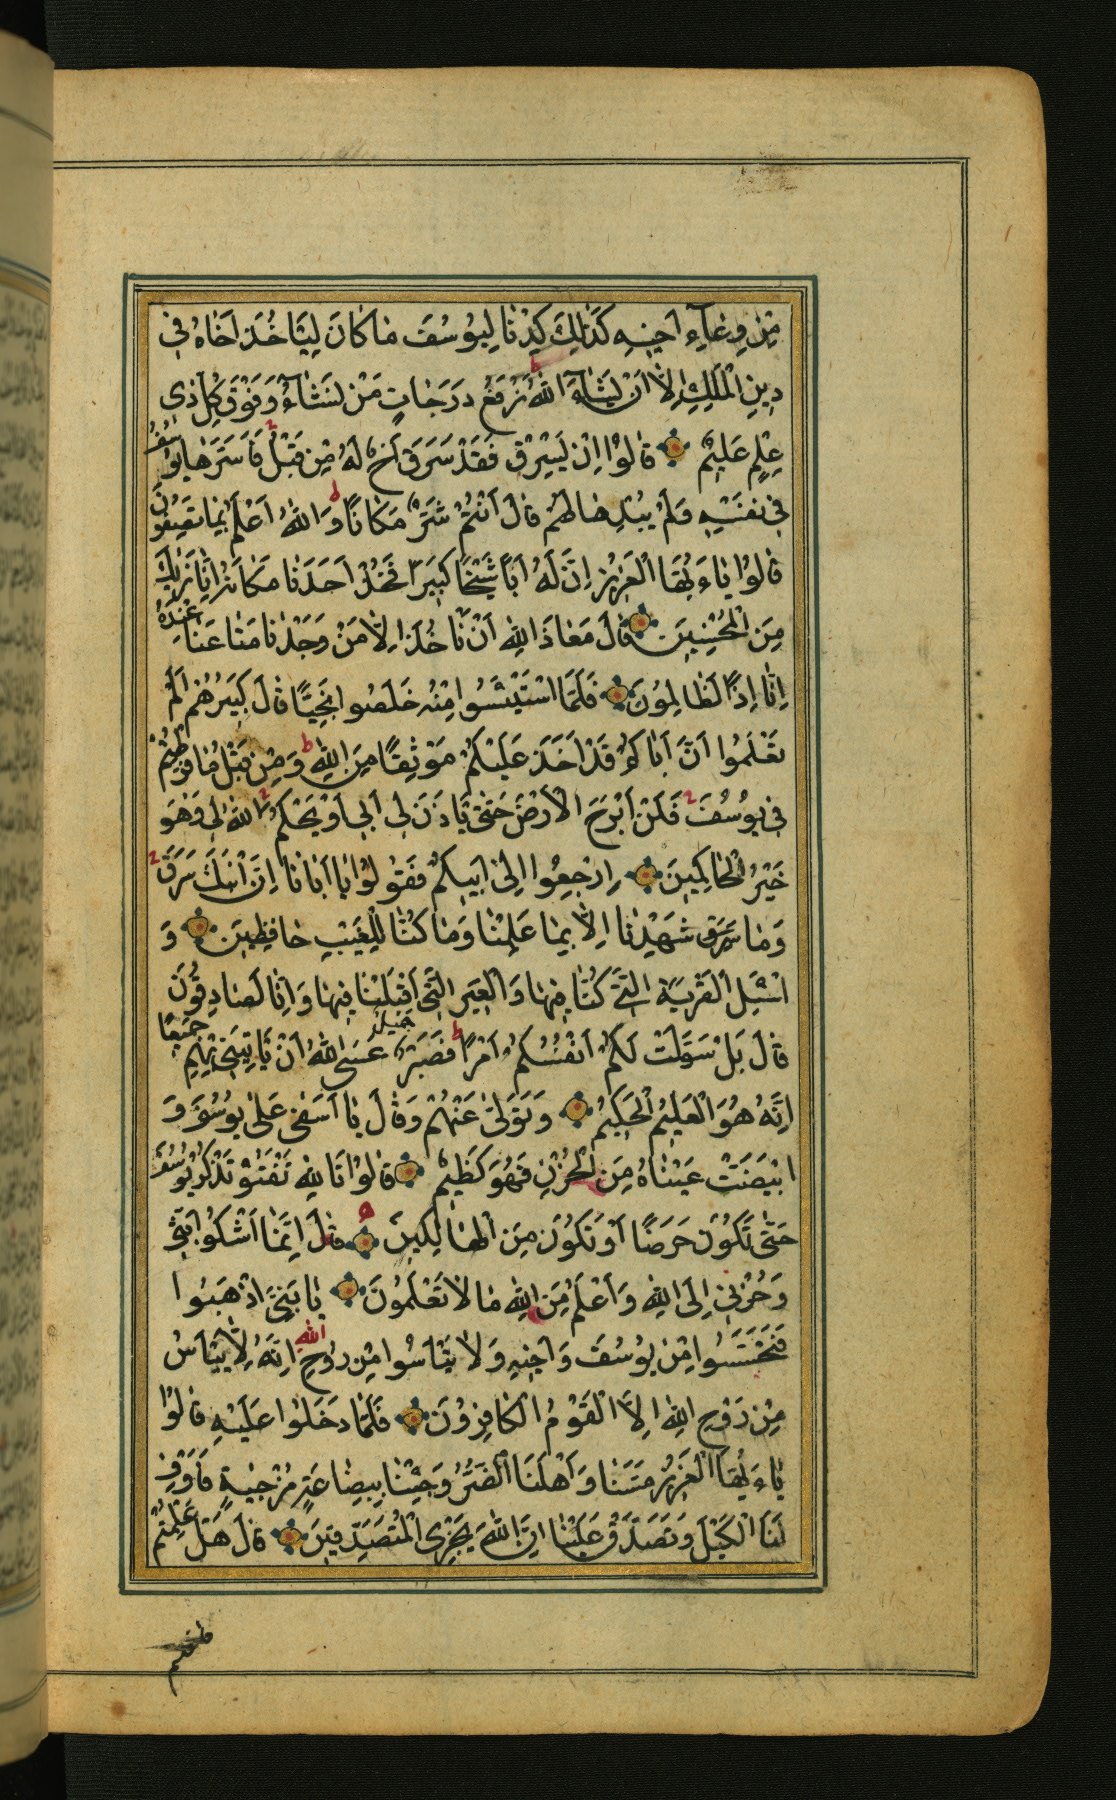 مِنْ وِعَآءِ اَخِيهِ كَذٰلِكَ كِدْنَا لِيُوسُفَ مَا كَانَ لِيَاْخُذَ اَخَاهُ فِي
دِينِ الْمَلِكِ اِلَّا اَنْ يَشَآءَ اللهُ نَرْفَعُ دَرَجَاتٍ مَنْ نَشَآءُ وَفَوْقَ كُلِّ ذِي
عِلْمٍ عَلِيمٌ قَالُوا اِنْ يَسْرِقْ فَقَدْ سَرَقَ اَخٌ لَهُ مِنْ قَبْلُ فَاَسَرَّهَا يُوسُفُ
فِي نَفْسِهِ وَلَمْ يُبْدِهَا لَهُمْ قَالَ اَنْتُمْ شَرٌّ مَكَانًا وَاللهُ اَعْلَمُ بِمَا تَصِفُونَ
قَالُوا يَاءَيُّهَا الْعَزِيزُ اِنَّ لَهُ اَبًا شَيْخًا كَبِيرًا فَخُذْ اَحَدَنَا مَكَانَهُ اِنَّا نَرٰيكَ
مِنَ الْمُحْسِنِينَ قَالَ مَعَاذَ اللهِ اَنْ نَاْخُذَ اِلَّا مَنْ وَجَدْنَا مَتَاعَنَا عِنْدَهُ
اِنَّا اِذًا لَظَالِمُونَ فَلَمَّا اسْتَيْئَسُوا مِنْهُ خَلَصُوا نَجِيًّا قَالَ كَبِيرُهُمْ اَلَمْ
تَعْلَمُوا اَنَّ اَبَاكُمْ قَدْ اَخَذَ عَلَيْكُمْ مَوْثِقًا مِنَ اللهِ وَمِنْ قَبْلُ مَا فَرَّطْتُمْ
فِي يُوسُفَ فَلَنْ اَبْرَحَ الْاَرْضَ حَتّٰى يَاْذَنَ لِي اَبِي اَوْ يَحْكُمَ اللهُ لِي وَهُوَ
خَيْرُ الْحَاكِمِينَ اِرْجِعُوا اِلٰى اَبِيكُمْ فَقُولُوا يَا اَبَانَا اِنَّ ابْنَكَ سَرَقَ
وَمَا شَهِدْنَا اِلَّا بِمَا عَلِمْنَا وَمَا كُنَّا لِلْغَيْبِ حَافِظِينَ وَ
اسْئَلِ الْقَرْيَةَ الَّتِي كُنَّا فِيهَا وَالْعِيرَ الَّتِي اَقْبَلْنَا فِيهَا وَاِنَّا لَصَادِقُونَ
قَالَ بَلْ سَوَّلَتْ لَكُمْ اَنْفُسُكُمْ اَمْرًا فَصَبْرٌ جَمِيلٌ عَسَى اللهُ اَنْ يَاْتِيَنِي بِهِمْ جَمِيعًا
اِنَّهُ هُوَ الْعَلِيمُ الْحَكِيمُ وَتَوَلّٰى عَنْهُمْ وَقَالَ يَا اَسَفٰى عَلٰى يُوسُفَ وَ
ابْيَضَّتْ عَيْنَاهُ مِنَ الْحُزْنِ فَهُوَ كَظِيمٌ قَالُوا تَاللهِ تَفْتَؤُ تَذْكُرُ يُوسُفَ
حَتّٰى تَكُونَ حَرَضًا اَوْ تَكُونَ مِنَ الْهَالِكِينَ قَالَ اِنَّمَا اَشْكُوا بَثِّي
وَحُزْنِي اِلَى اللهِ وَاَعْلَمُ مِنَ اللهِ مَا لَا تَعْلَمُونَ يَا بَنِيَّ اذْهَبُوا
فَتَحَسَّسُوا مِنْ يُوسُفَ وَاَخِيهِ وَلَا تَيْاَسُوا مِنْ رَوْحِ اللهِ اِنَّهُ لَا يَيْاَسُ
مِنْ رَوْحِ اللهِ اِلَّا الْقَوْمُ الْكَافِرُونَ فَلَمَّا دَخَلُوا عَلَيْهِ قَالُوا
يَاءَيُّهَا الْعَزِيزُ مَسَّنَا وَاَهْلَنَا الضُّرُّ وَجِئْنَا بِبِضَاعَةٍ مُزْجٰيةٍ فَاَوْفِ
لَنَا الْكَيْلَ وَتَصَدَّقْ عَلَيْنَا اِنَّ اللهَ يَجْزِي الْمُتَصَدِّقِينَ قَالَ هَلْ عَلِمْتُمْ